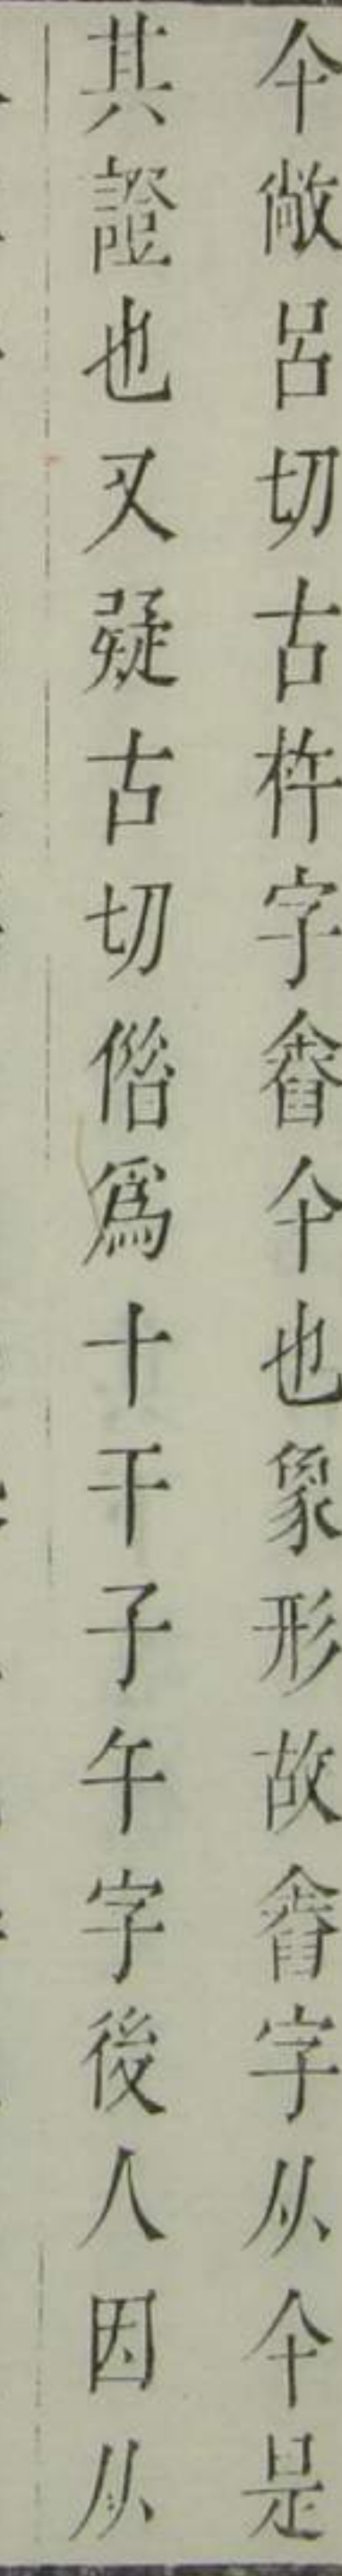 仐敞呂切古杵字舂仐也象形故舂字从仐是
其證也又疑古切偕爲十干子午字後人因从